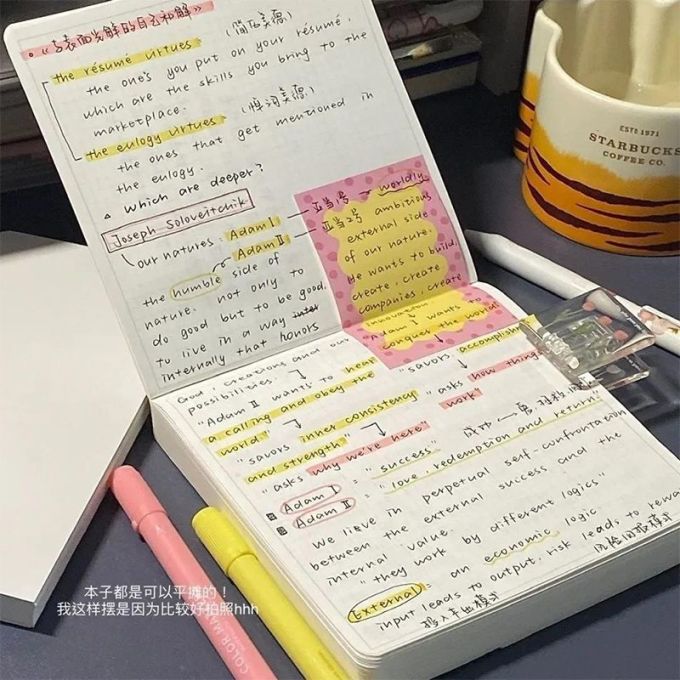 the résumé virtues
the one's you put on your résumé,
which are the skills you bring to the
marketplace.
the eulogy virtues
the ones that get mentioned in
the eulogy.
which are deeper?
Joseph Soloveitchik
our natures: Adam I
Adam II
the humble side of
nature. not only to
do good but to be good.
to live in a way
internally that honors
亚当1号 → worldly,
亚当2号 ambitious
external side
of our nature.
He wants to build,
create, create
companies, create
innovation
Adam I wants to
conquer the world
God, creations and our
possibilities.
"Adam II wants to hear
a calling and obey the
world."
"savors inner consistency
and strength"
"asks why we're here"
"savors accomplish
"asks how thing
work"
Adam I = "success"
Adam II = "love, redemption and return"
We live in perpetual self-confrontation
between the external success and the
internal value.
"they work by different logics"
External = an economic logic
input leads to output, risk leads to rewa
投入产出模式
ESTD 1971
STARBUCKS
COFFEE CO.
COLOR MA
本子都是可以平摊的！
我这样摆是因为比较好拍照hhh